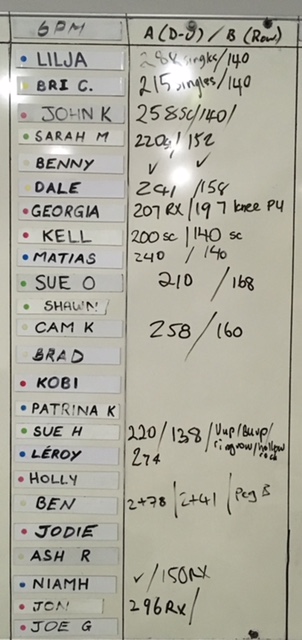 6PM A (D-J) / B (Row)
LILJA 284 singles/140
BRI C. 215 singles/140
JOHN K 258sc/140/
SARAH M 220s/152
BENNY ✓ ✓
DALE 241 /158
GEORGIA 207 RX/197 knee PU
KELL 200 sc/140 sc
MATIAS 240 / 140
SUE O 210 / 168
SHAWN
CAM K 258/160
BRAD
KOBI
PATRINA K
SUE H 220/138/Vup/Burp/
ringrow/hollow
rock
LÉROY 274
HOLLY
BEN 2+78/2+41/Peg B
JODIE
ASH R
NIAMH ✓/150RX
JON 296RX/
JOE G